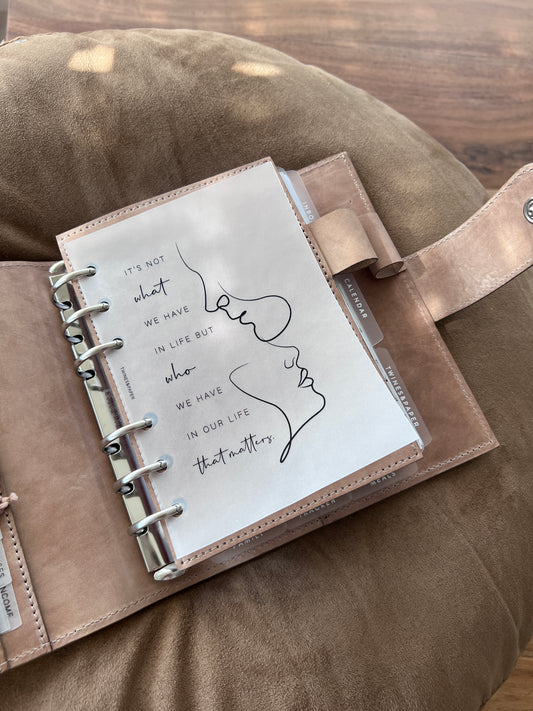 IT'S NOT
what
WE HAVE
IN LIFE BUT
who
WE HAVE
IN OUR LIFE
that matters.
TWINES&PAPER
INFO
CALENDAR
TWINES&PAPER
FAMILY
INCOME